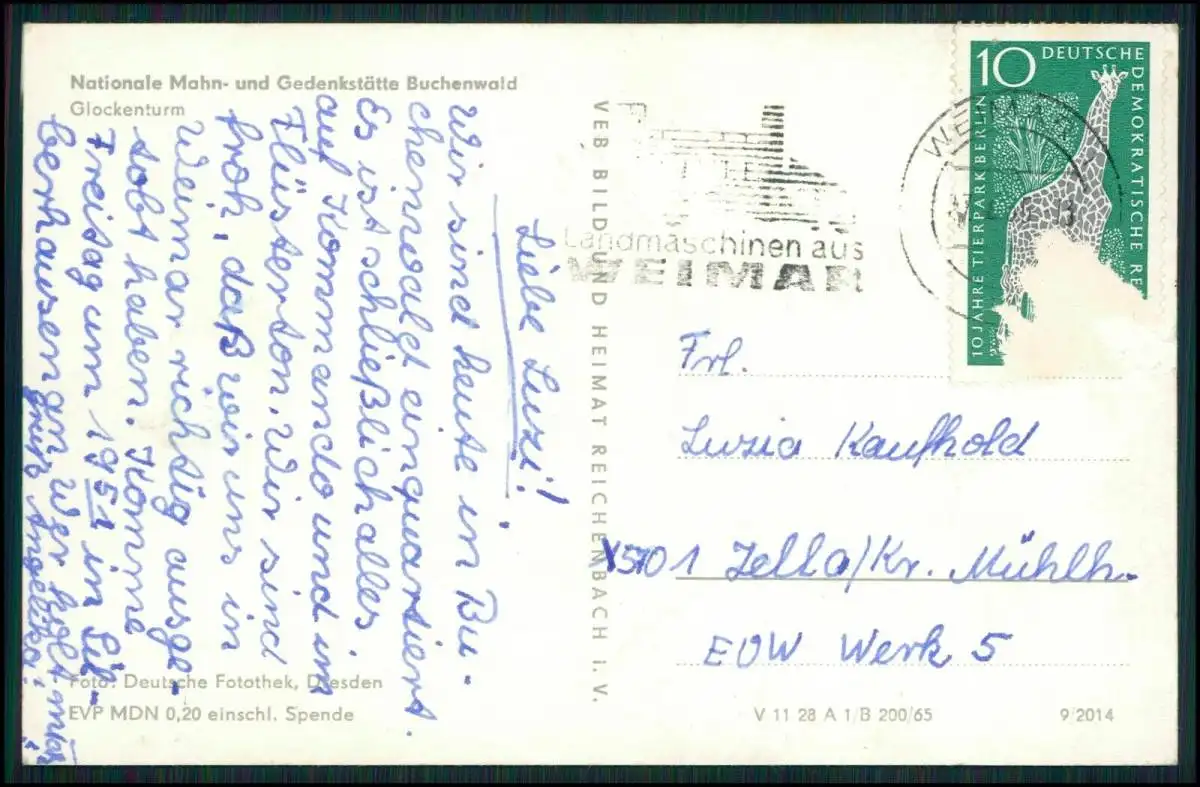 Nationale Mahn- und Gedenkstätte Buchenwald
Glockenturm
Liebe Luzi!
Wir sind heute in Bu-
chenwald einquartiert.
Es ist schließlich alles
auf Kommando und im
Flüsterton. Wir sind
froh, daß wir uns in
Weimar richtig ausge-
sobt haben. Komme
Freitag um 19 51 in Sil-
berhausen an. Wer holt mich
Angelika
Foto: Deutsche Fotothek, Dresden
EVP MDN 0,20 einschl. Spende
VEB BILD UND HEIMAT REICHENBACH I. V.
Landmaschinen aus
WEIMAR
WEIMAR
10
DEUTSCHE
DEMOKRATISCHE RE
10 JAHRE TIERPARK BERLIN
Frl.
Luzia Kaufhold
5701 Zella/Kr. Mühlh.
EOW Werk 5
V 11 28 A 1/B 200/65
9/2014